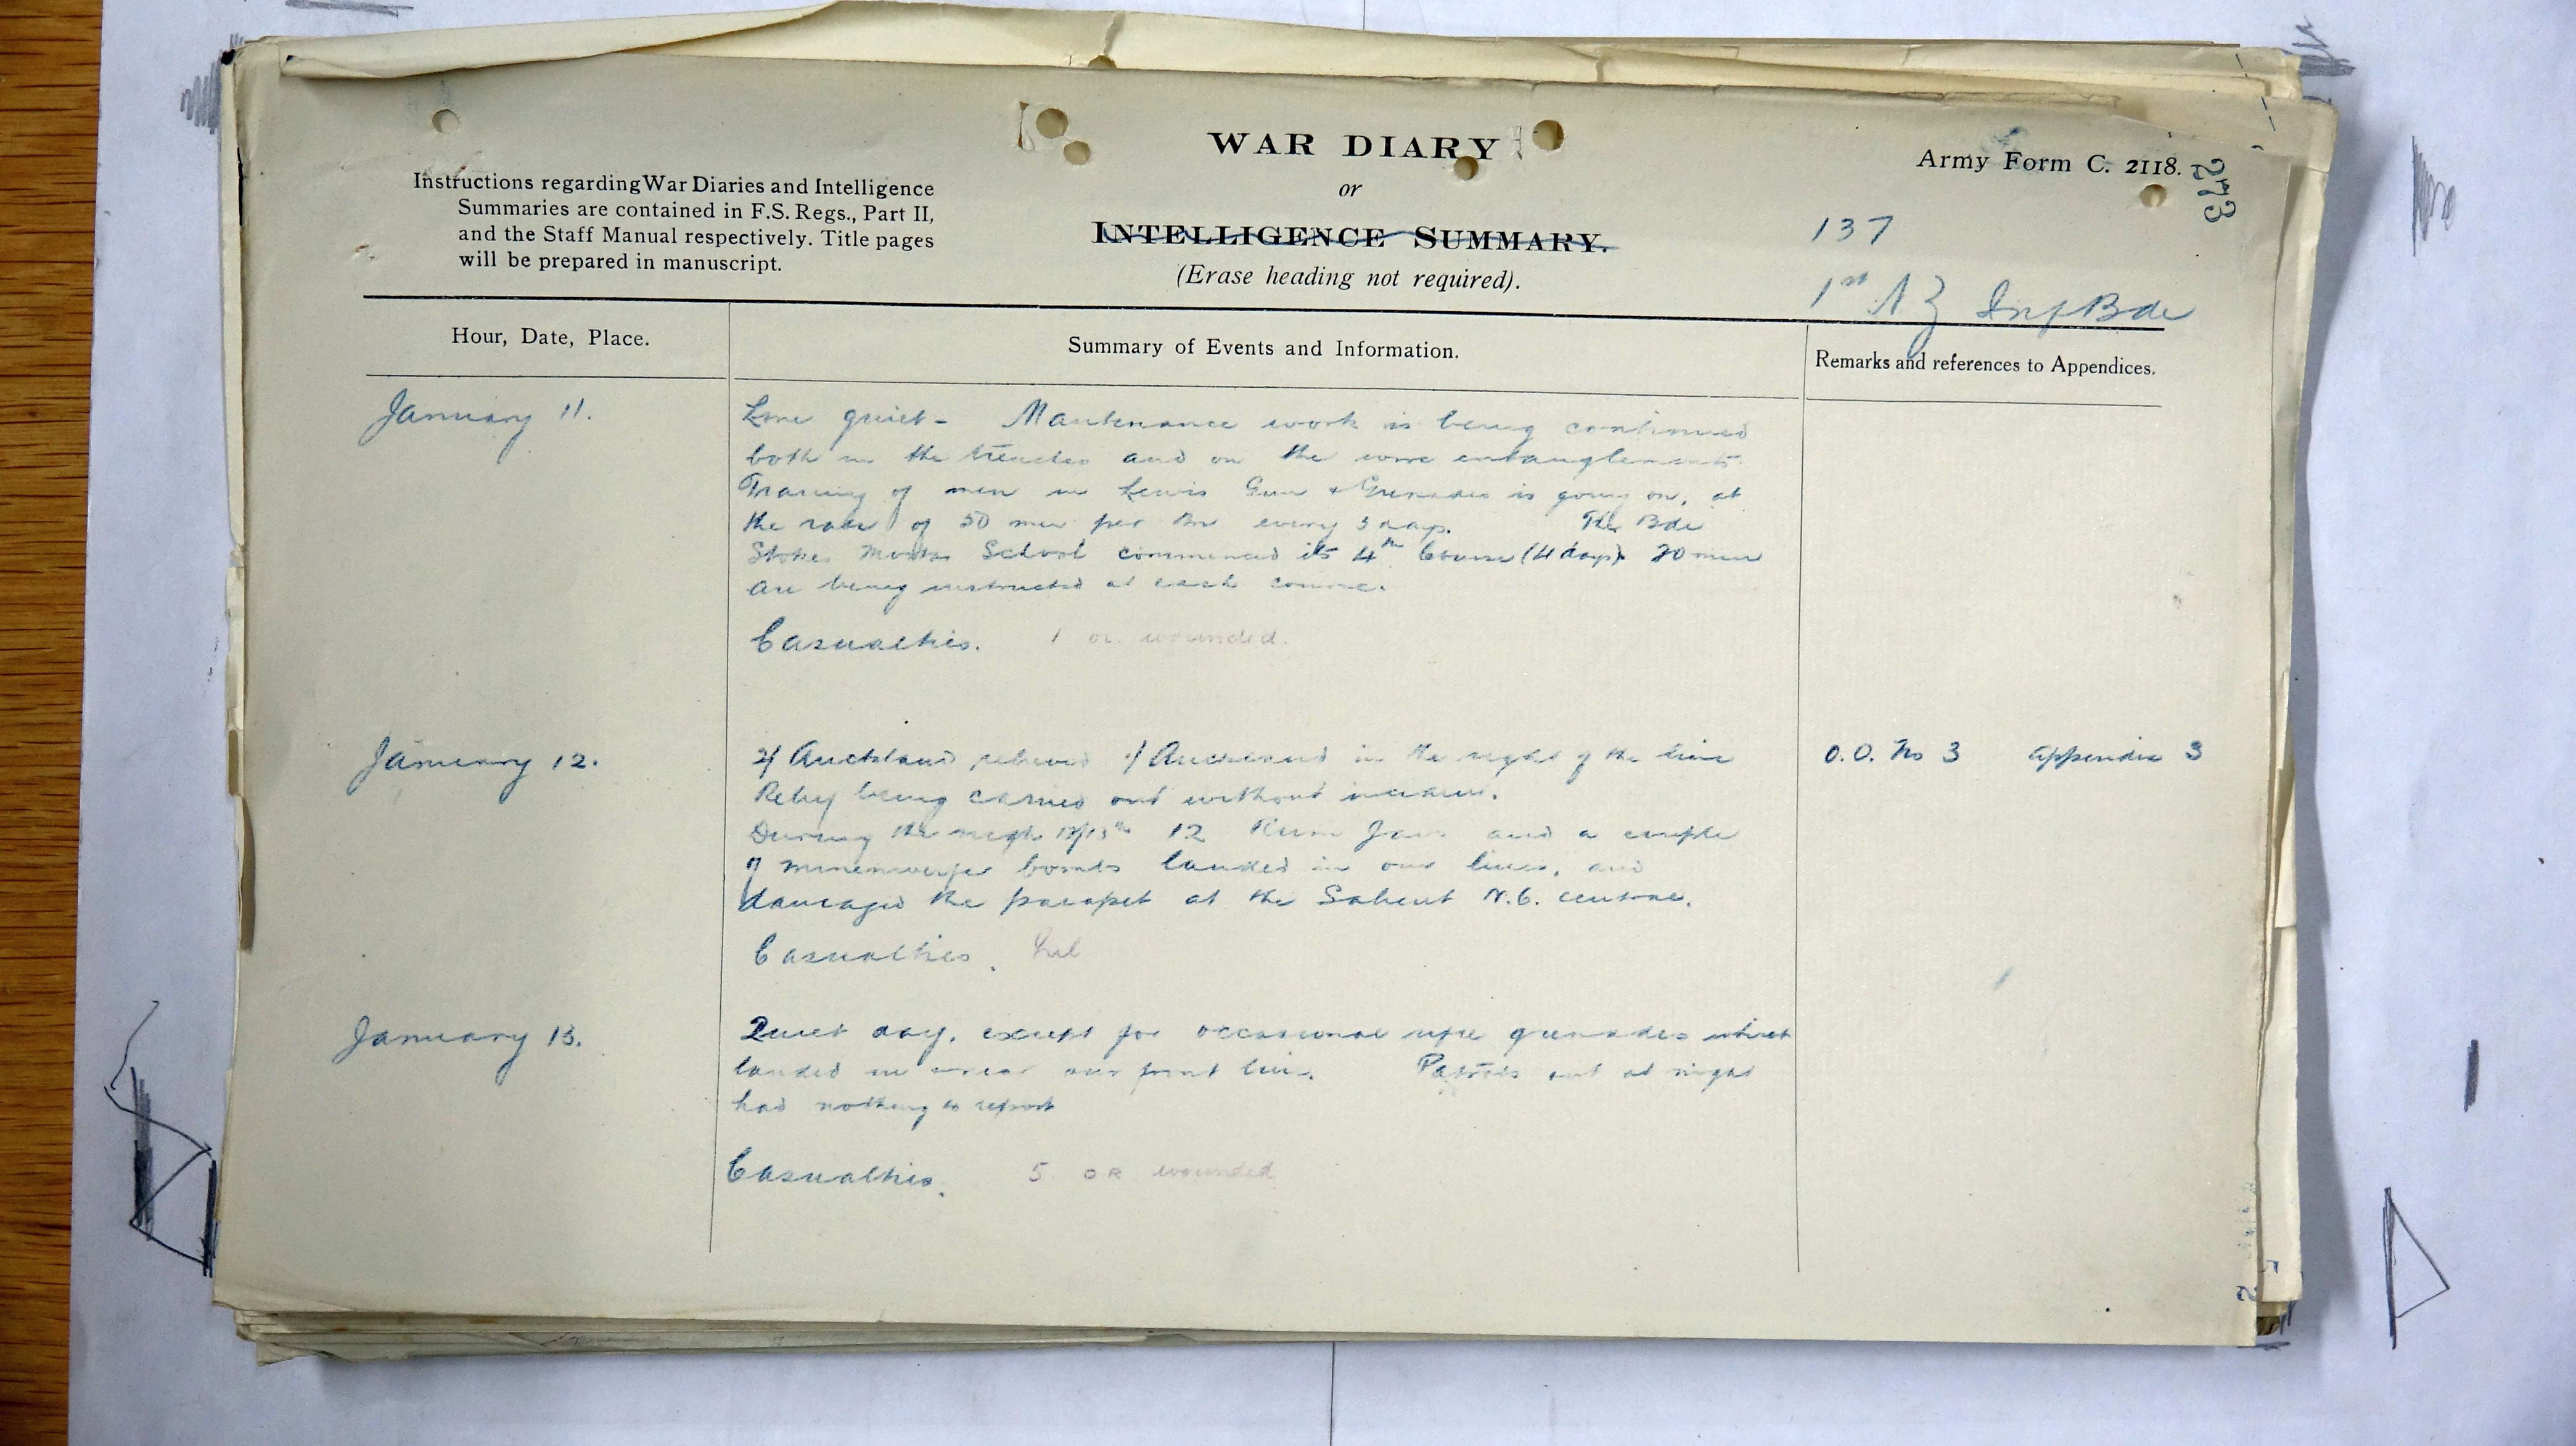 WAR DIARY
or
INTELLIGENCE SUMMARY.
(Erase heading not required).
Instructions regarding War Diaries and Intelligence
Summaries are contained in F.S. Regs., Part II,
and the Staff Manual respectively. Title pages
will be prepared in manuscript.
Army Form C. 2118.
273
137
1st NZ Inf Bde
Hour, Date, Place.
Summary of Events and Information.
Remarks and references to Appendices.
January 11.
Line quiet - Maintenance work is being continued
both in the trenches and on the wire entanglements.
Training of men in Lewis Gun & Grenades is going on, at
the rate of 50 men per Bn every 3 days. The Bde
Stokes Mortar School commenced its 4th Course (4 days). 20 men
are being instructed at each course.
Casualties. 1 or wounded.
January 12.
2/ Auckland relieved 1/ Auckland in the right of the line
Relief being carried out without incident.
During the night 12/13th 12 Rum Jars and a couple
of minenwerfer bombs landed in our lines, and
damaged the parapet at the Salient N.6. central.
Casualties. Nil
O.O. No 3 Appendix 3
January 13.
Quiet day, except for occasional rifle grenades which
landed in or near our front line. Patrols out at night
had nothing to report
Casualties. 5 OR wounded